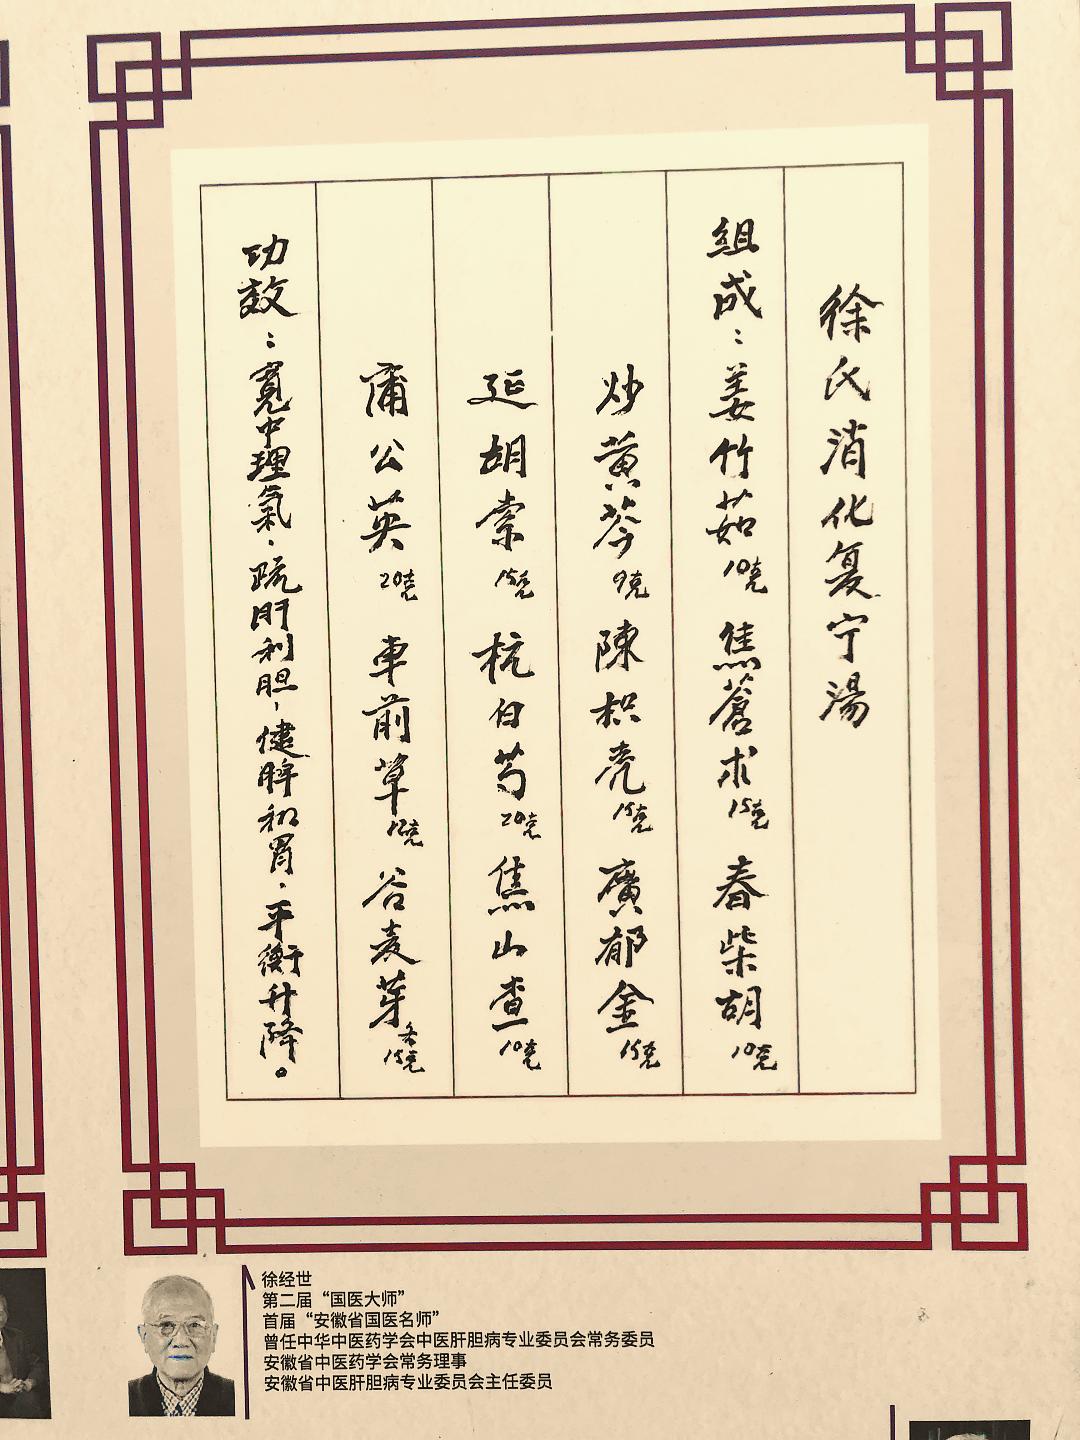 徐氏消化复宁湯
組成：姜竹茹10克 焦蒼术15克 春柴胡10克
炒黄芩9克 陳枳壳15克 廣郁金15克
延胡索15克 杭白芍20克 焦山查10克
蒲公英20克 車前草12克 谷麦芽各15克
功效：寬中理氣，疏肝利胆，健脾和胃，平衡升降。
徐经世
第二届“国医大师”
首届“安徽省国医名师”
曾任中华中医药学会中医肝胆病专业委员会常务委员
安徽省中医药学会常务理事
安徽省中医肝胆病专业委员会主任委员